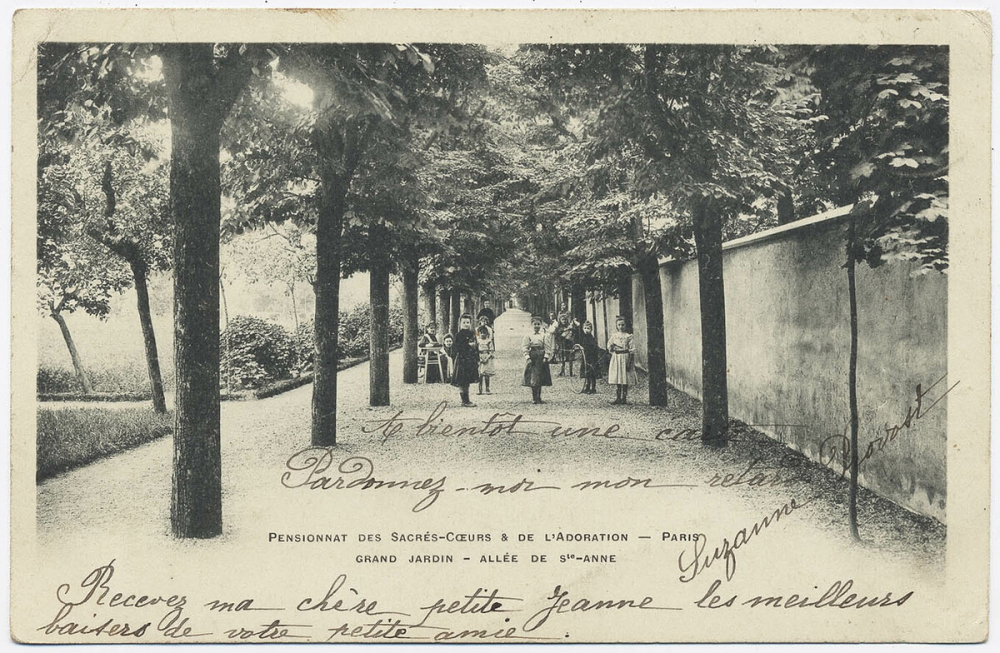 A bientôt une ca
Pardonnez-moi mon retard
PENSIONNAT DES SACRÉS-CŒURS & DE L'ADORATION — PARIS
GRAND JARDIN - ALLÉE DE Ste-ANNE
Suzanne
Recevez ma chère petite Jeanne les meilleurs
baisers de votre petite amie.